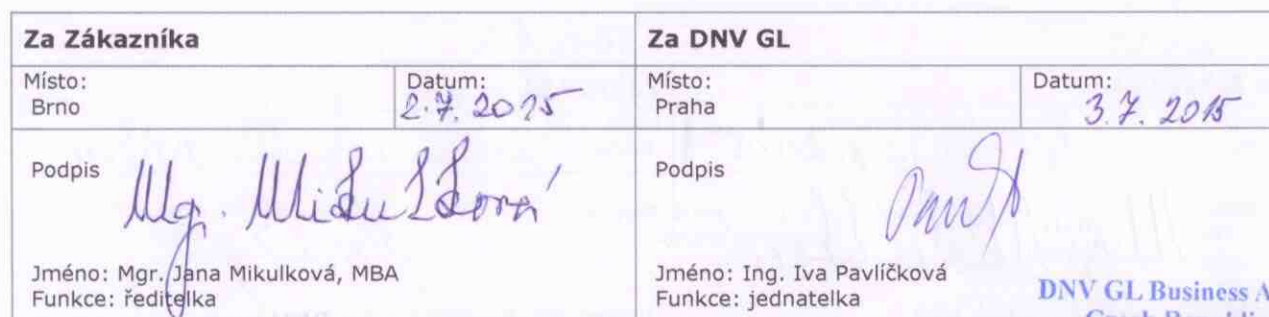 Za Zákazníka
Za DNV GL
Místo:
Brno
Datum:
2.7.2015
Místo:
Praha
Datum:
3.7.2015
Podpis
Mgr. Mikulková
Podpis
Jméno: Mgr. Jana Mikulková, MBA
Funkce: ředitelka
Jméno: Ing. Iva Pavlíčková
Funkce: jednatelka
DNV GL Business A